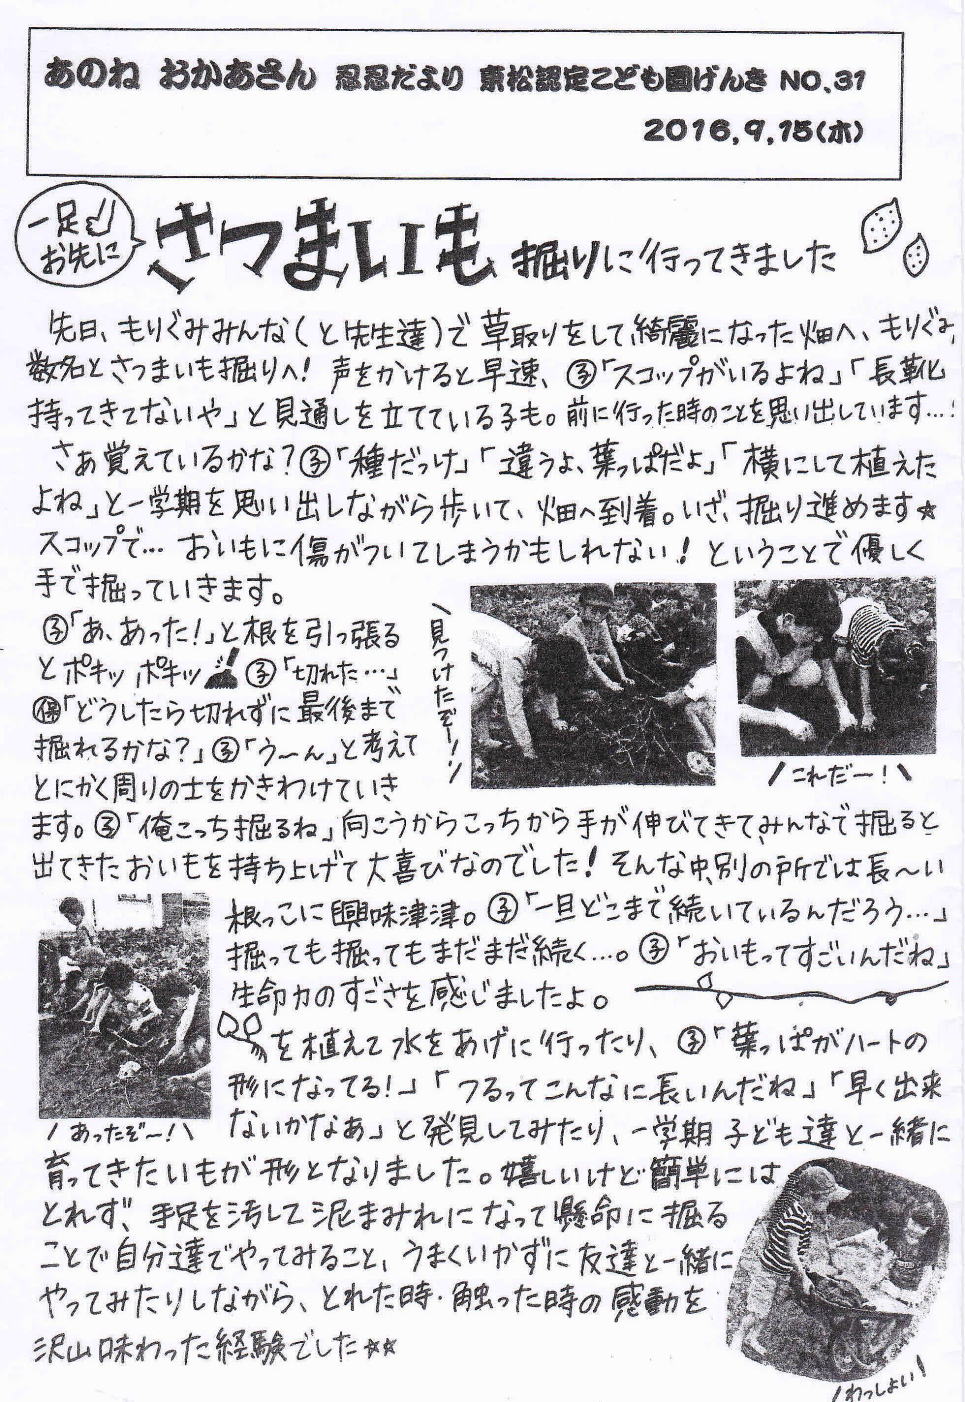 あのね おかあさん 忍忍だより 京松認定こども園げんき NO.31
2016.9.15(木)
一足
お先に
さつまいも 掘りに行ってきました
先日、もりぐみみんな(と先生達)で草取りをして綺麗になった畑へ、もりぐみ
数名とさつまいも掘りへ! 声をかけると早速、子「スコップがいるよね」「長靴
持ってきてないや」と見通しを立てている子も。前に行った時のことを思い出しています…!
さぁ覚えているかな?子「種だっけ」「違うよ、葉っぱだよ」「横にして植えた
よね」と一学期を思い出しながら歩いて、畑へ到着。いざ、掘り進めます☆
スコップで… おいもに傷がついてしまうかもしれない! ということで優しく
手で掘っていきます。
子「あ、あった!」と根を引っ張る
とポキッ ポキッ 子「切れた…」
保「どうしたら切れずに最後まで
掘れるかな?」子「う〜ん」と考えて
とにかく周りの土をかきわけていき
\見つけたぞー!/
\これだー!/
ます。子「俺こっち掘るね」向こうからこっちから手が伸びてきてみんなで掘ると
出てきたおいもを持ち上げて大喜びなのでした! そんな中、別の所では長〜い
根っこに興味津津。子「一旦どこまで続いているんだろう…」
掘っても掘ってもまだまだ続く…。子「おいもってすごいんだね」
生命力のすごさを感じましたよ。
を植えて水をあげに行ったり、子「葉っぱがハートの
形になってる!」「つるってこんなに長いんだね」「早く出来
ないかなぁ」と発見してみたり、一学期子ども達と一緒に
\あったぞー!/
育ってきたいもが形となりました。嬉しいけど簡単には
とれず、手足を汚して泥まみれになって懸命に掘る
ことで自分達でやってみること、うまくいかずに友達と一緒に
やってみたりしながら、とれた時・触った時の感動を
沢山味わった経験でした☆☆
\わっしょい!/